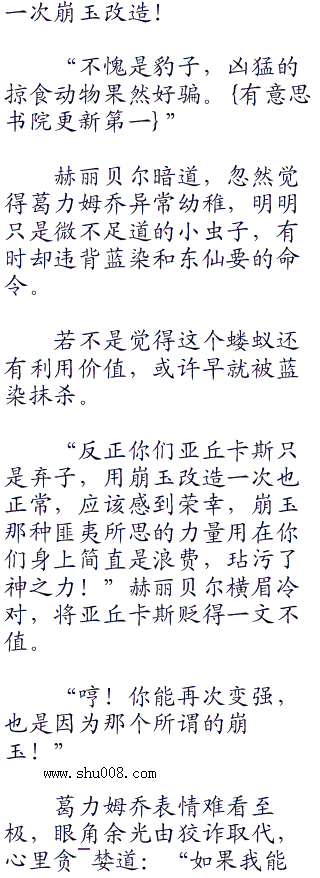 一次崩玉改造！
“不愧是豹子，凶猛的
掠食动物果然好骗。{有意思
书院更新第一}”
赫丽贝尔暗道，忽然觉
得葛力姆乔异常幼稚，明明
只是微不足道的小虫子，有
时却违背蓝染和东仙要的命
令。
若不是觉得这个蝼蚁还
有利用价值，或许早就被蓝
染抹杀。
“反正你们亚丘卡斯只
是弃子，用崩玉改造一次也
正常，应该感到荣幸，崩玉
那种匪夷所思的力量用在你
们身上简直是浪费，玷污了
神之力！”赫丽贝尔横眉冷
对，将亚丘卡斯贬得一文不
值。
“哼！你能再次变强，
也是因为那个所谓的崩
玉！”
www.shu008.com
葛力姆乔表情难看至
极，眼角余光由狡诈取代，
心里贪¯婪道：“如果我能